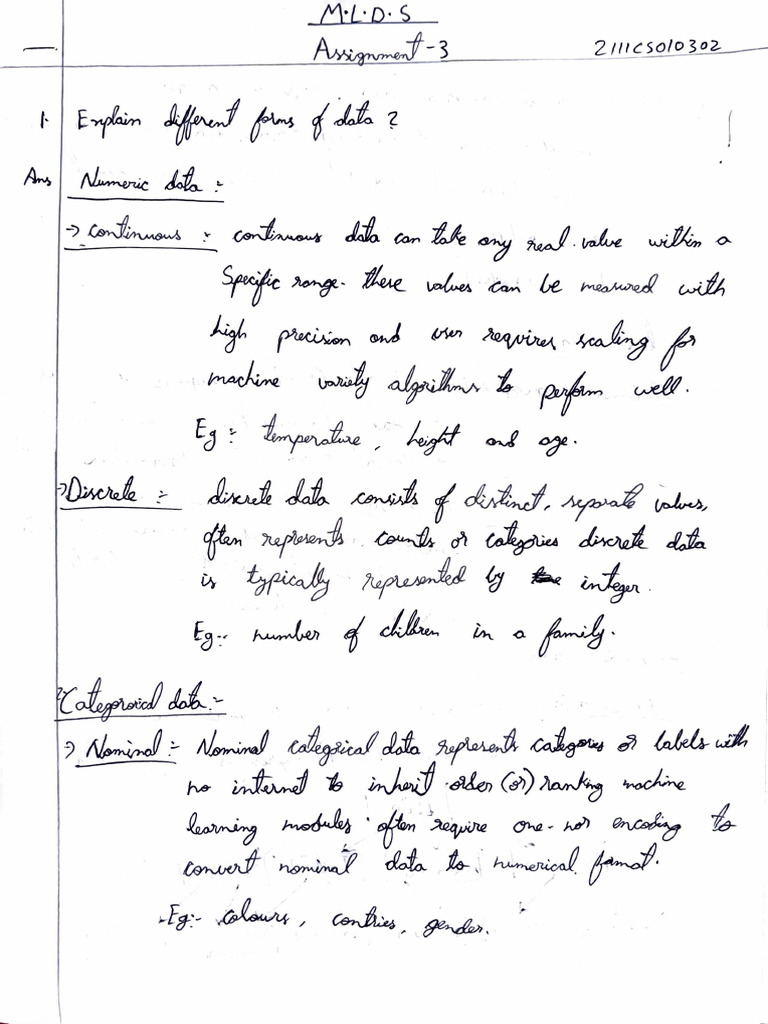 M.L.D.S
Assignment-3
2111CS010302
1. Explain different forms of data?
Ans Numeric data :-
→ continuous :- continuous data can take any real value within a
Specific range. these values can be measured with
high precision and user requires scaling for
machine variety algorithms to perform well.
Eg :- temperature, height and age.
→ Discrete :- discrete data consists of distinct, separate values,
often represents counts or categories discrete data
is typically represented by integer.
Eg:- number of children in a family.
Categoroical data :-
→ Nominal :- Nominal categorical data represents categories or labels with
no internet to inherit order (or) ranking machine
learning modules often require one-nor encoding to
convert nominal data to numerical format.
Eg:- colours, contries, gender.